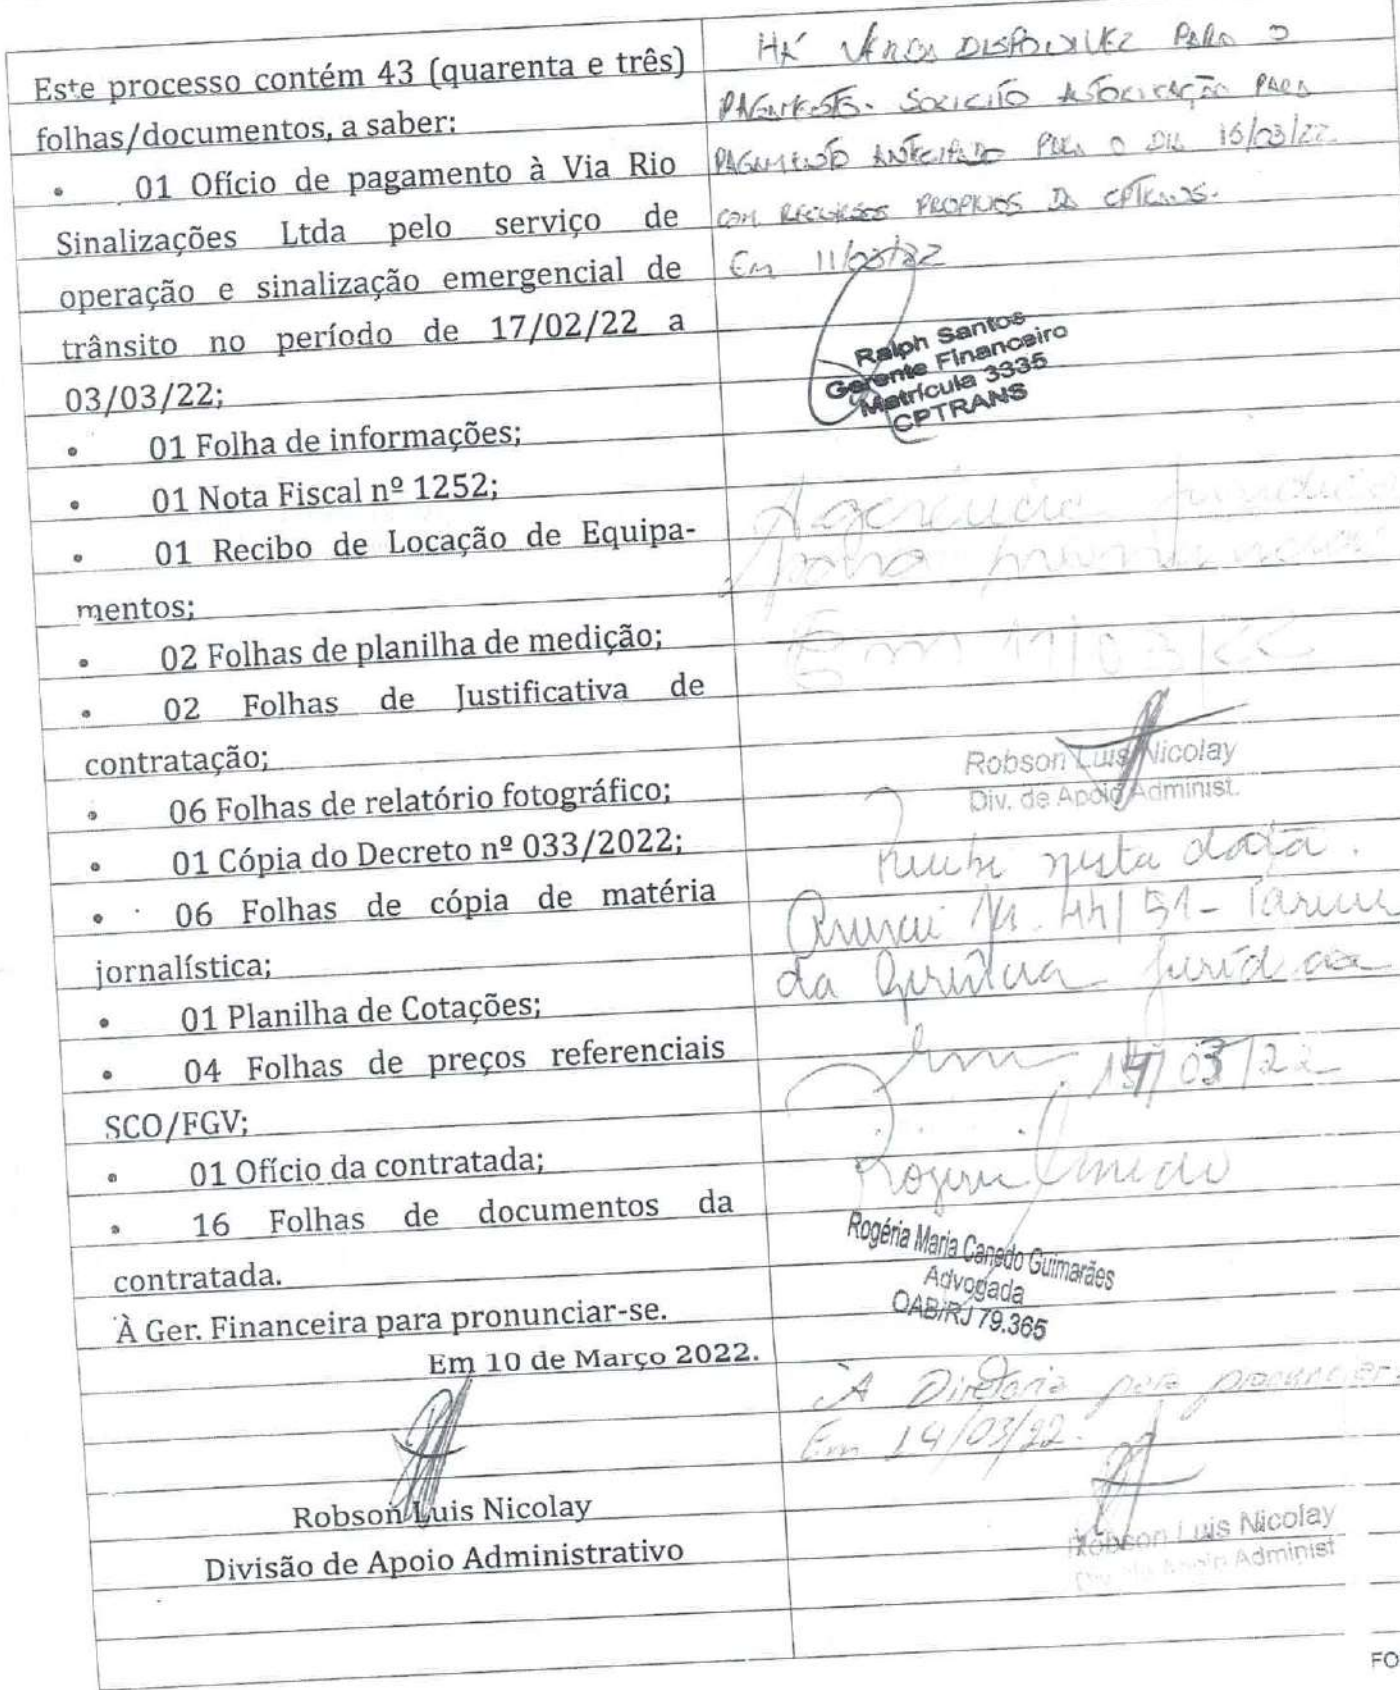 Este processo contém 43 (quarenta e três)
folhas/documentos, a saber:
• 01 Ofício de pagamento à Via Rio
Sinalizações Ltda pelo serviço de
operação e sinalização emergencial de
trânsito no período de 17/02/22 a
03/03/22;
• 01 Folha de informações;
• 01 Nota Fiscal nº 1252;
• 01 Recibo de Locação de Equipa-
mentos;
• 02 Folhas de planilha de medição;
• 02 Folhas de Justificativa de
contratação;
• 06 Folhas de relatório fotográfico;
• 01 Cópia do Decreto nº 033/2022;
• 06 Folhas de cópia de matéria
jornalística;
• 01 Planilha de Cotações;
• 04 Folhas de preços referenciais
SCO/FGV;
• 01 Ofício da contratada;
• 16 Folhas de documentos da
contratada.
À Ger. Financeira para pronunciar-se.
Em 10 de Março 2022.
Robson Luis Nicolay
Divisão de Apoio Administrativo
HÁ VERBA DISPONIVEL PARA O
PAGAMENTO. SOLICITO AUTORIZAÇÃO PARA
PAGAMENTO ANTECIPADO PARA O DIA 15/03/22
COM RECURSOS PROPRIOS DA CPTRANS.
Em 11/03/22
Ralph Santos
Gerente Financeiro
Matrícula 3335
CPTRANS
A gerência jurídica
Em 11/03/22
Robson Luis Nicolay
Div. de Apoio Administ.
Recebi nesta data.
Anexei fls. 44/51 - Parecer
da Gerência Jurídica
Em 14/03/22
Rogéria Canedo
Rogéria Maria Canedo Guimarães
Advogada
OAB/RJ 79.365
À Diretoria para pronunciar-
Em 14/03/22.
Robson Luis Nicolay
Div. de Apoio Administ
FO